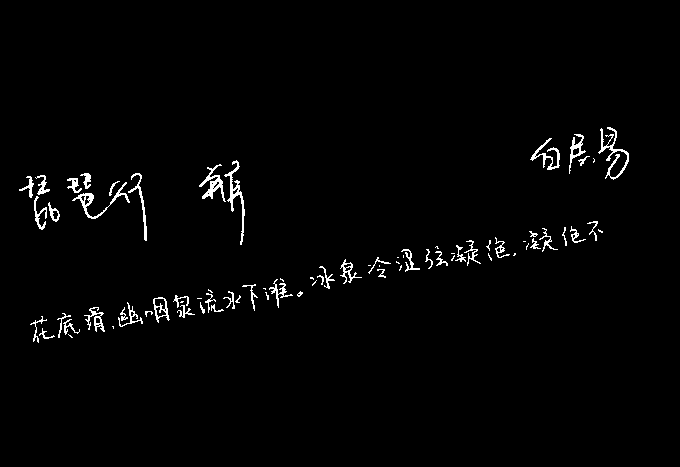 琵琶行 白居易
花底滑,幽咽泉流水下滩。冰泉冷涩弦凝绝,凝绝不